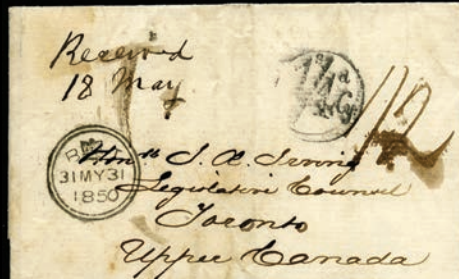 Received
18 May
31MY31
1850
Honble J. Æ. Irving
Legislative Council
Toronto
Upper Canada